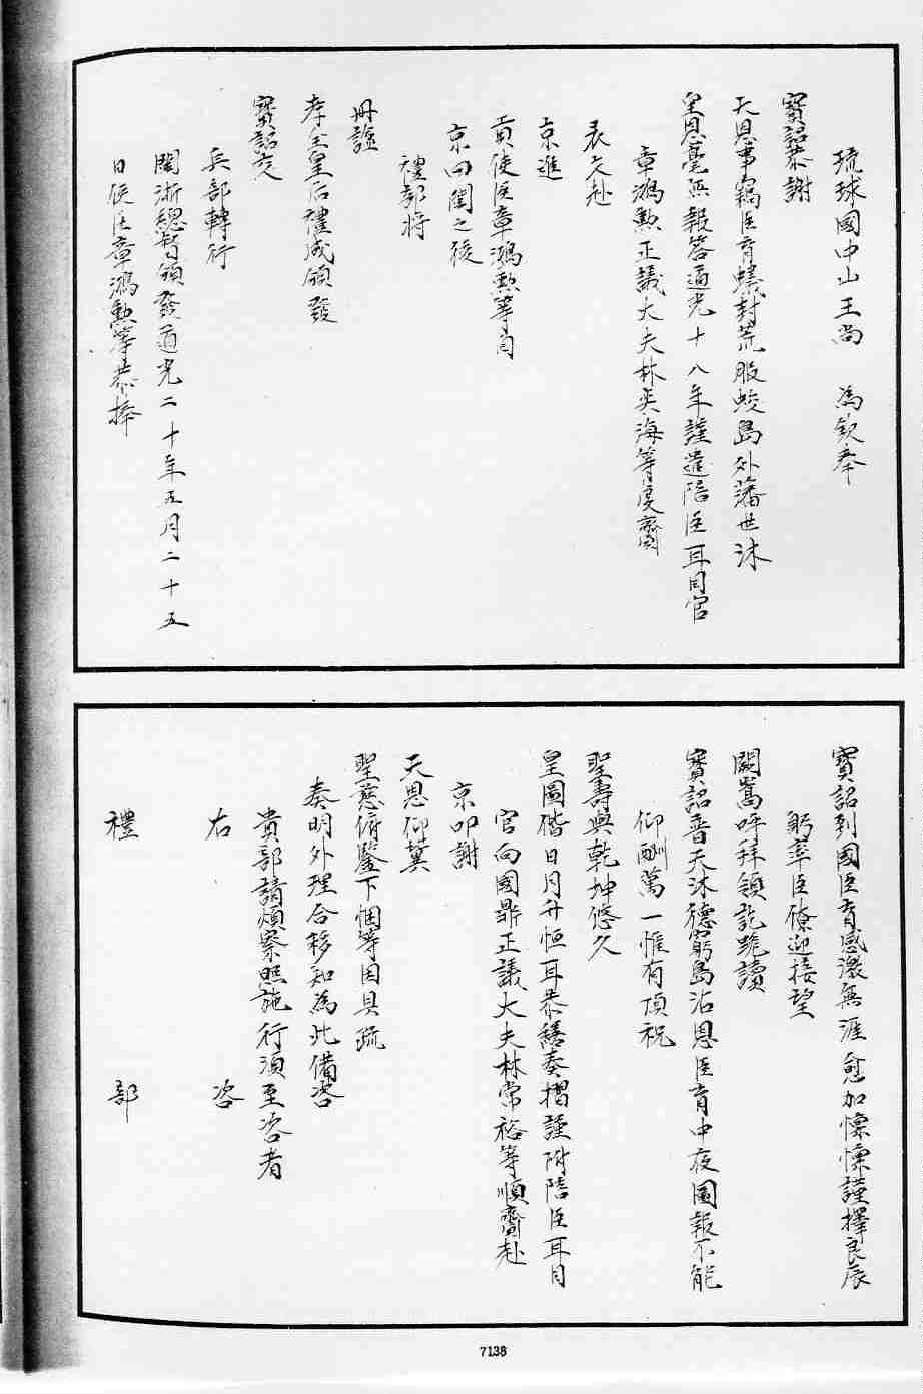 琉球國中山王尚　為欽奉
寶詔恭謝
天恩事竊臣育蟻封荒服蛟島外藩世沐
皇恩毫無報答道光十八年謹遣陪臣耳目官
章鴻勲正議大夫林奕海等虔齎
表文赴
京進
貢使臣章鴻勲等自
京回閩之後
禮部將
冊謚
孝全皇后禮成頒發
寶詔交
兵部轉行
閩浙總督頒發道光二十年五月二十五
日使臣章鴻勲等恭捧
寶詔到國臣育感激無涯愈加懍懍謹擇良辰
躬率臣僚迎接望
闕嵩呼拜領訖跪讀
寶詔普天沐德窮島沾恩臣育中夜圖報不能
仰酬萬一惟有頂祝
聖壽與乾坤悠久
皇圖偕日月升恒耳恭繕奏摺謹附陪臣耳目
官向國鼎正議大夫林常裕等順齎赴
京叩謝
天恩仰冀
聖慈俯鑒下悃等因具疏
奏明外理合移知為此備咨
貴部請煩察照施行須至咨者
右　咨
禮　部
7138